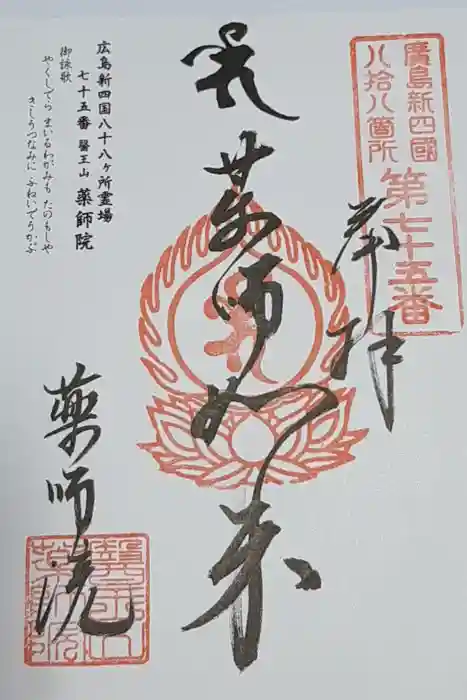 廣島新四國
八拾八箇所
第七十五番
奉拝
薬師如来
広島新四国八十八ヶ所霊場
七十五番 醫王山 薬師院
御詠歌
やくしでら まいるわがみも たのもしや
きしうつなみに ふねいでうかぶ
薬師院